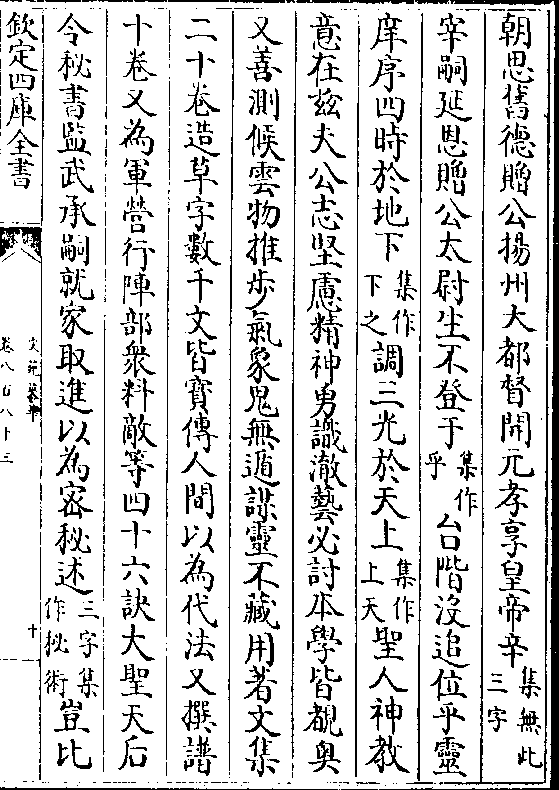 朝思舊德贈公揚州大都督開元孝享皇帝辛集無此三字
宰嗣延恩贈公太尉生不登于集作乎台階沒追位乎靈
庠序四時於地下集作下之調三光於天上集作上天聖人神教
意在兹夫公志堅慮精神勇識澈藝必討本學皆覩奥
又善測候雲物推步氣象鬼無遁謀靈不藏用著文集
二十卷造草字數千文皆寳傳人間以為代法又撰譜
十卷又為軍營行陣部衆料敵等四十六訣大聖天后
令秘書監武承嗣就家取進以為宻秘述三字集作秘術豈比
欽定四庫全書
文苑英華
卷八百八十三
十